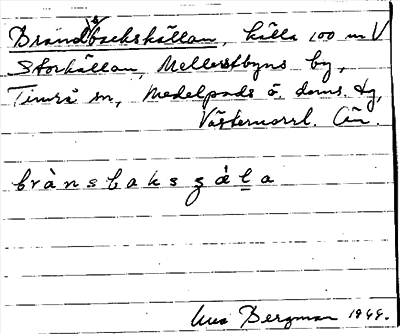 Brandsbackskällan, källa 100 m V
Storkällan, Mellerstbyns by,
Timrå sn, Medelpads ö. doms. tg,
Västernorrl. län.
brànsbaksʒæ̀l̠a
Bergman 1949.